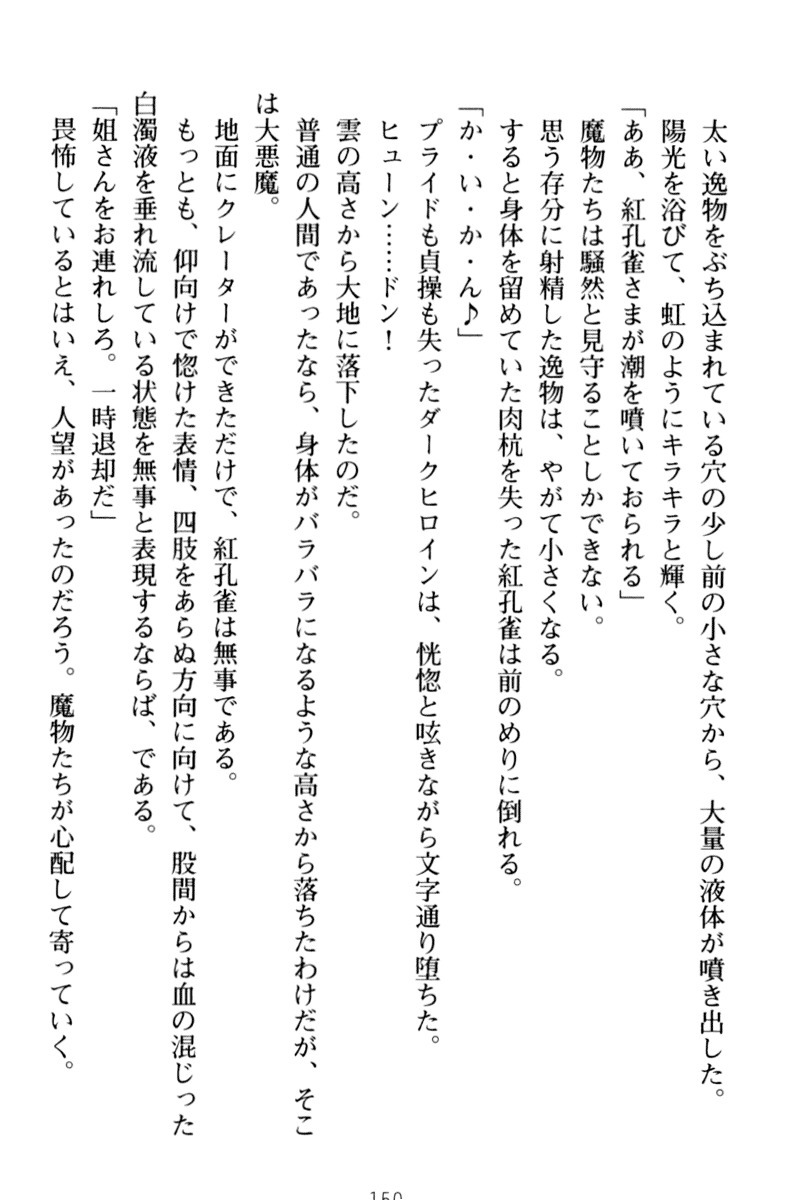 太い逸物をぶち込まれている穴の少し前の小さな穴から、大量の液体が噴き出した。
陽光を浴びて、虹のようにキラキラと輝く。
「ああ、紅孔雀さまが潮を噴いておられる」
魔物たちは騒然と見守ることしかできない。
思う存分に射精した逸物は、やがて小さくなる。
すると身体を留めていた肉杭を失った紅孔雀は前のめりに倒れる。
「か・い・か・ん♪」
プライドも貞操も失ったダークヒロインは、恍惚と呟きながら文字通り堕ちた。
ヒューン……ドン！
雲の高さから大地に落下したのだ。
普通の人間であったなら、身体がバラバラになるような高さから落ちたわけだが、そこ
は大悪魔。
地面にクレーターができただけで、紅孔雀は無事である。
もっとも、仰向けで惚けた表情、四肢をあらぬ方向に向けて、股間からは血の混じった
白濁液を垂れ流している状態を無事と表現するならば、である。
「姐さんをお連れしろ。一時退却だ」
畏怖しているとはいえ、人望があったのだろう。魔物たちが心配して寄っていく。
150